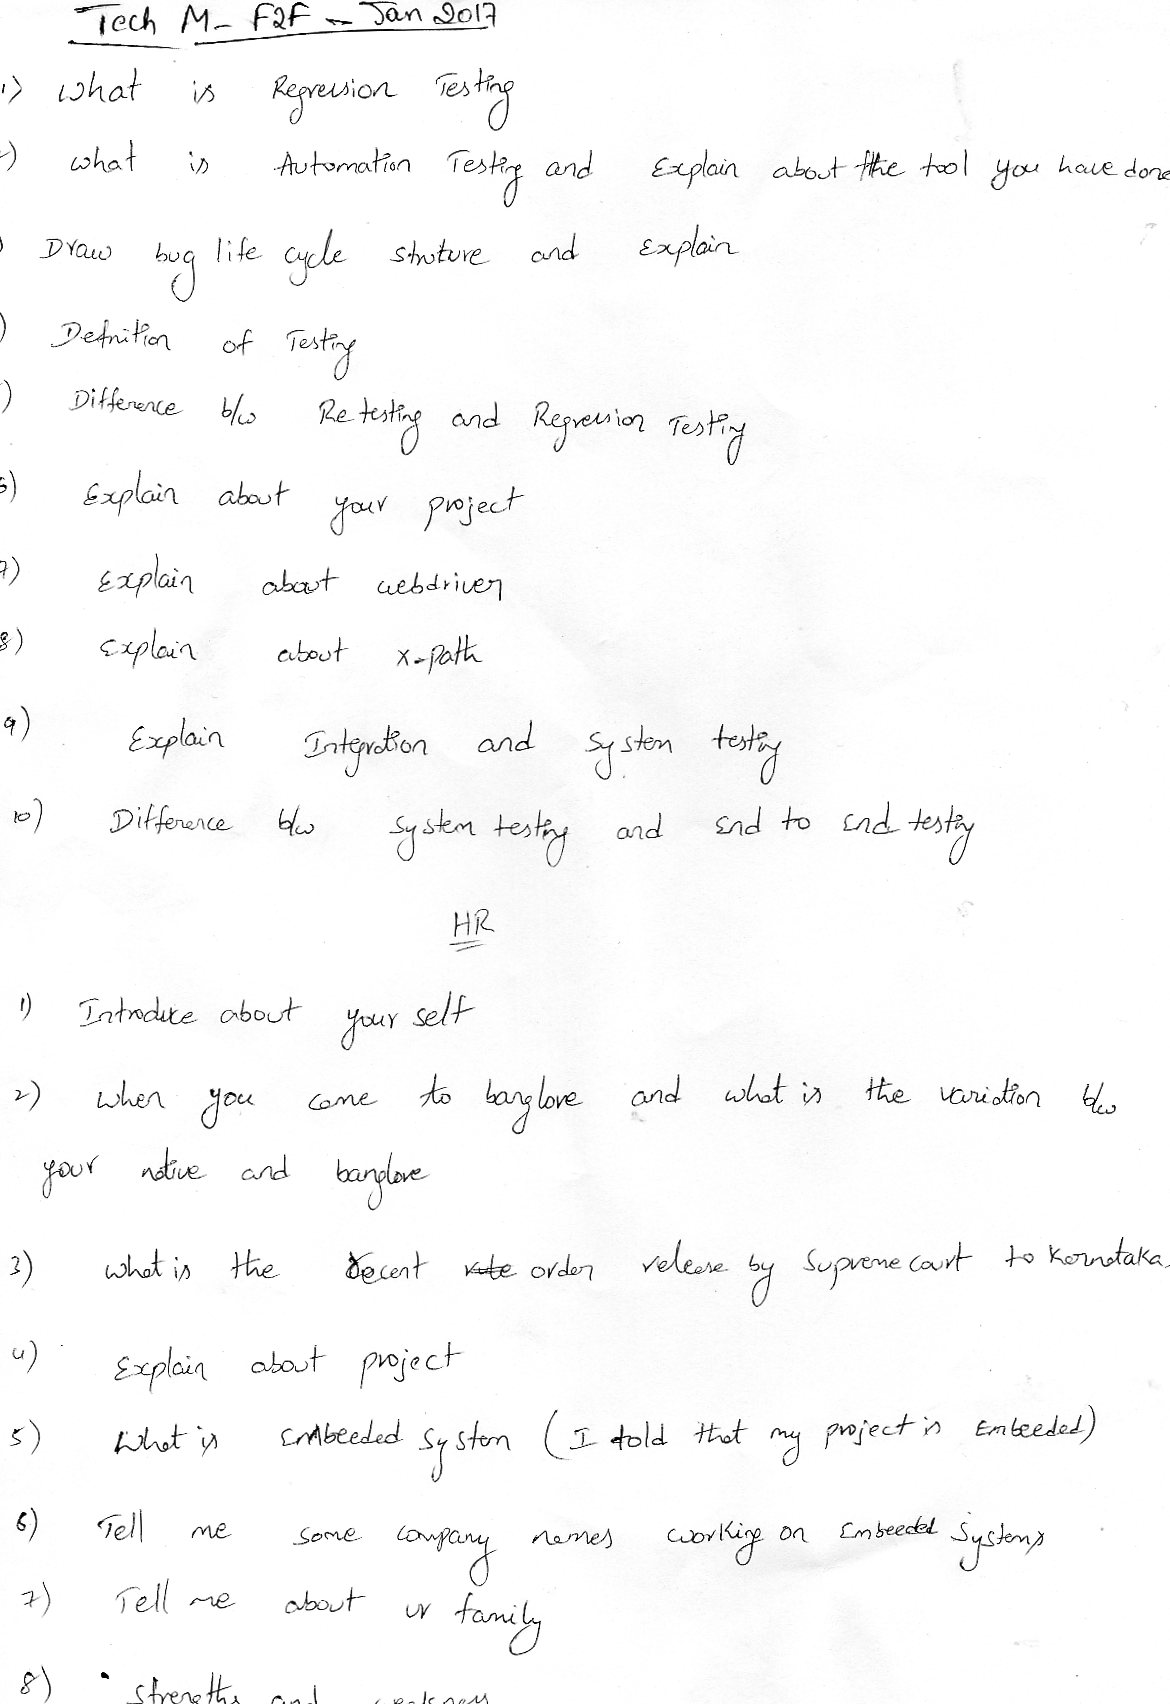 Tech M - F2F - Jan 2017
1) What is Regression Testing
) what is Automation Testing and Explain about the tool you have done
) Draw bug life cycle struture and Explain
) Definition of Testing
) Difference b/w Re testing and Regression Testing
6) Explain about your project
7) Explain about webdriver
8) Explain about x-path
9) Explain Integration and System testing
10) Difference b/w System testing and End to End testing
HR
1) Introduce about your self
2) when you come to banglore and what is the variation b/w
your native and banglore
3) what is the recent order release by Supreme court to Kernataka
4) Explain about project
5) What is Embeeded System (I told that my project is Embeeded)
6) Tell me some company names working on Embeeded Systems
7) Tell me about ur family
8) Strengths and weakness